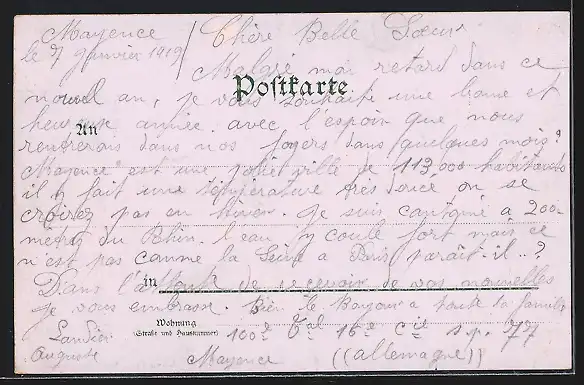 Mayence
le 7 Janvier 1919
Chère Belle Soeur
Malgré mon retard dans ce
Postkarte
nouvel an, je vous souhaite une bonne et
An
heureuse année. avec l'espoir que nous
rentrerons dans nos foyers dans quelques mois?
Mayence est une jolie ville de 113,000 habitants
il y fait une température très douce on se
croirez pas en hiver. Je suis cantonné à 200
metres du Rhin. l'eau y coule fort mais ce
n'est pas comme la Seine à Paris paraît-il..?
in
Dans l'attente de recevoir de vos nouvelles
je vous embrasse. Bien le Bonjour a toute la famille
Wohnung
(Straße und Hausnummer)
Landier
Auguste
100e Bal 16e Cie s.p. 77
Mayence ((allemagne))